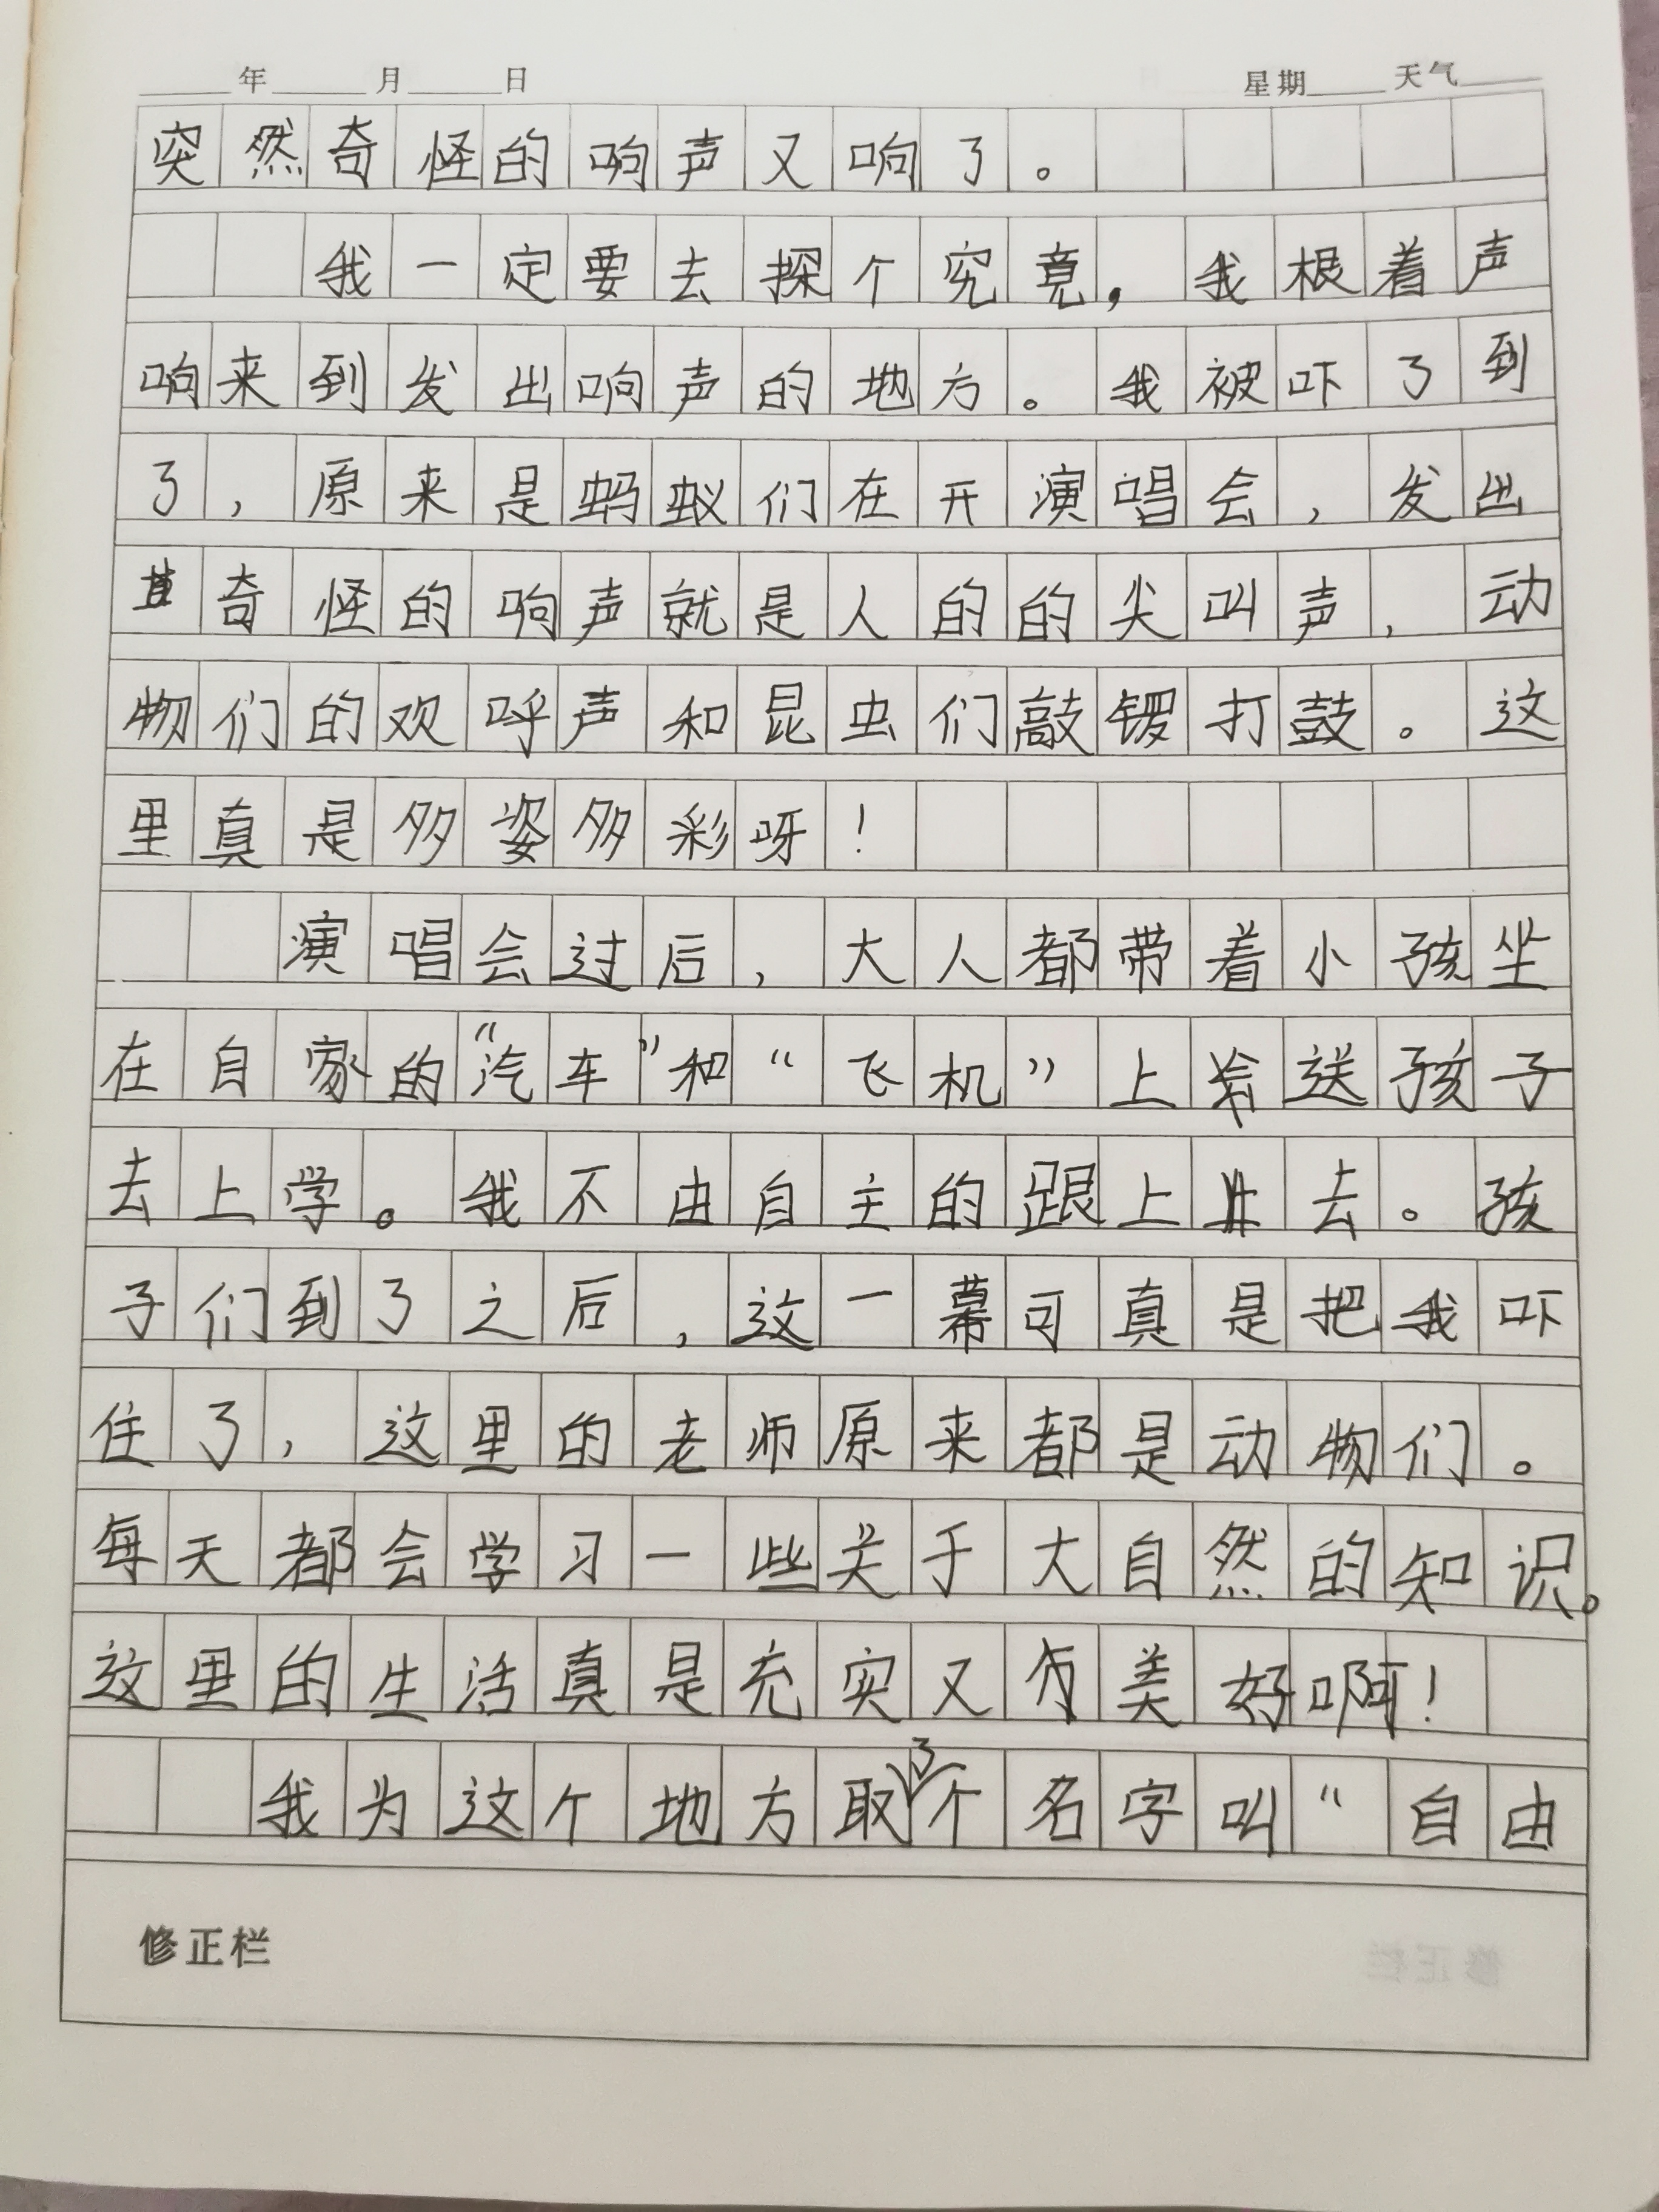 年 月 日 星期 天气
突然奇怪的响声又响了。
我一定要去探个究竟，我根着声
响来到发出响声的地方。我被吓了到
了，原来是蚂蚁们在开演唱会，发出
奇怪的响声就是人的的尖叫声，动
物们的欢呼声和昆虫们敲锣打鼓。这
里真是多姿多彩呀！
演唱会过后，大人都带着小孩坐
在自家的“汽车”和“飞机”上送孩子
去上学。我不由自主的跟上去。孩
子们到了之后，这一幕可真是把我吓
住了，这里的老师原来都是动物们。
每天都会学习一些关于大自然的知识。
这里的生活真是充实又美好啊！
我为这个地方取了个名字叫“自由
修正栏